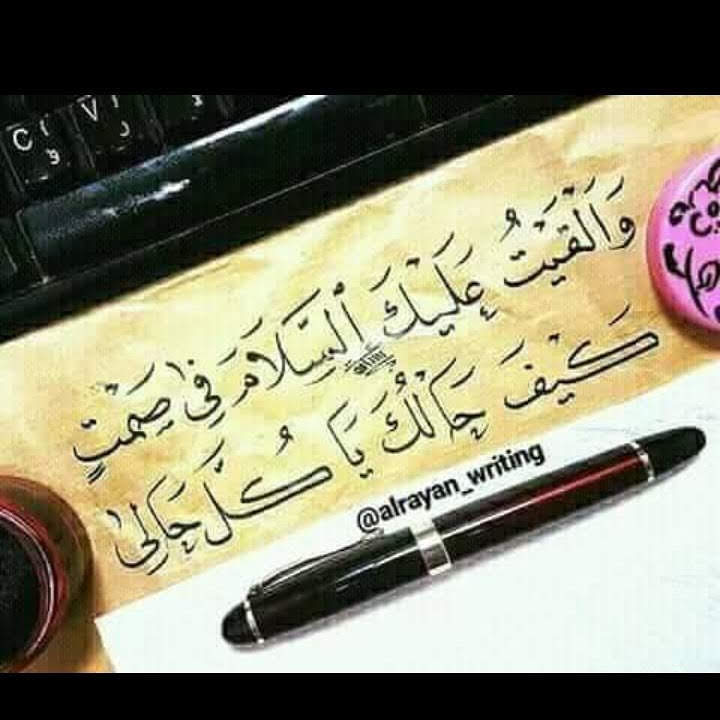 وَالْقَيْتُ عَلَيْكَ ٱلسَّلَامَ فِي صَمْتٍ
كَيْفَ حَالُكَ يَا كُلَّ حَالِي
@alrayan_writing
C
و
V
ر